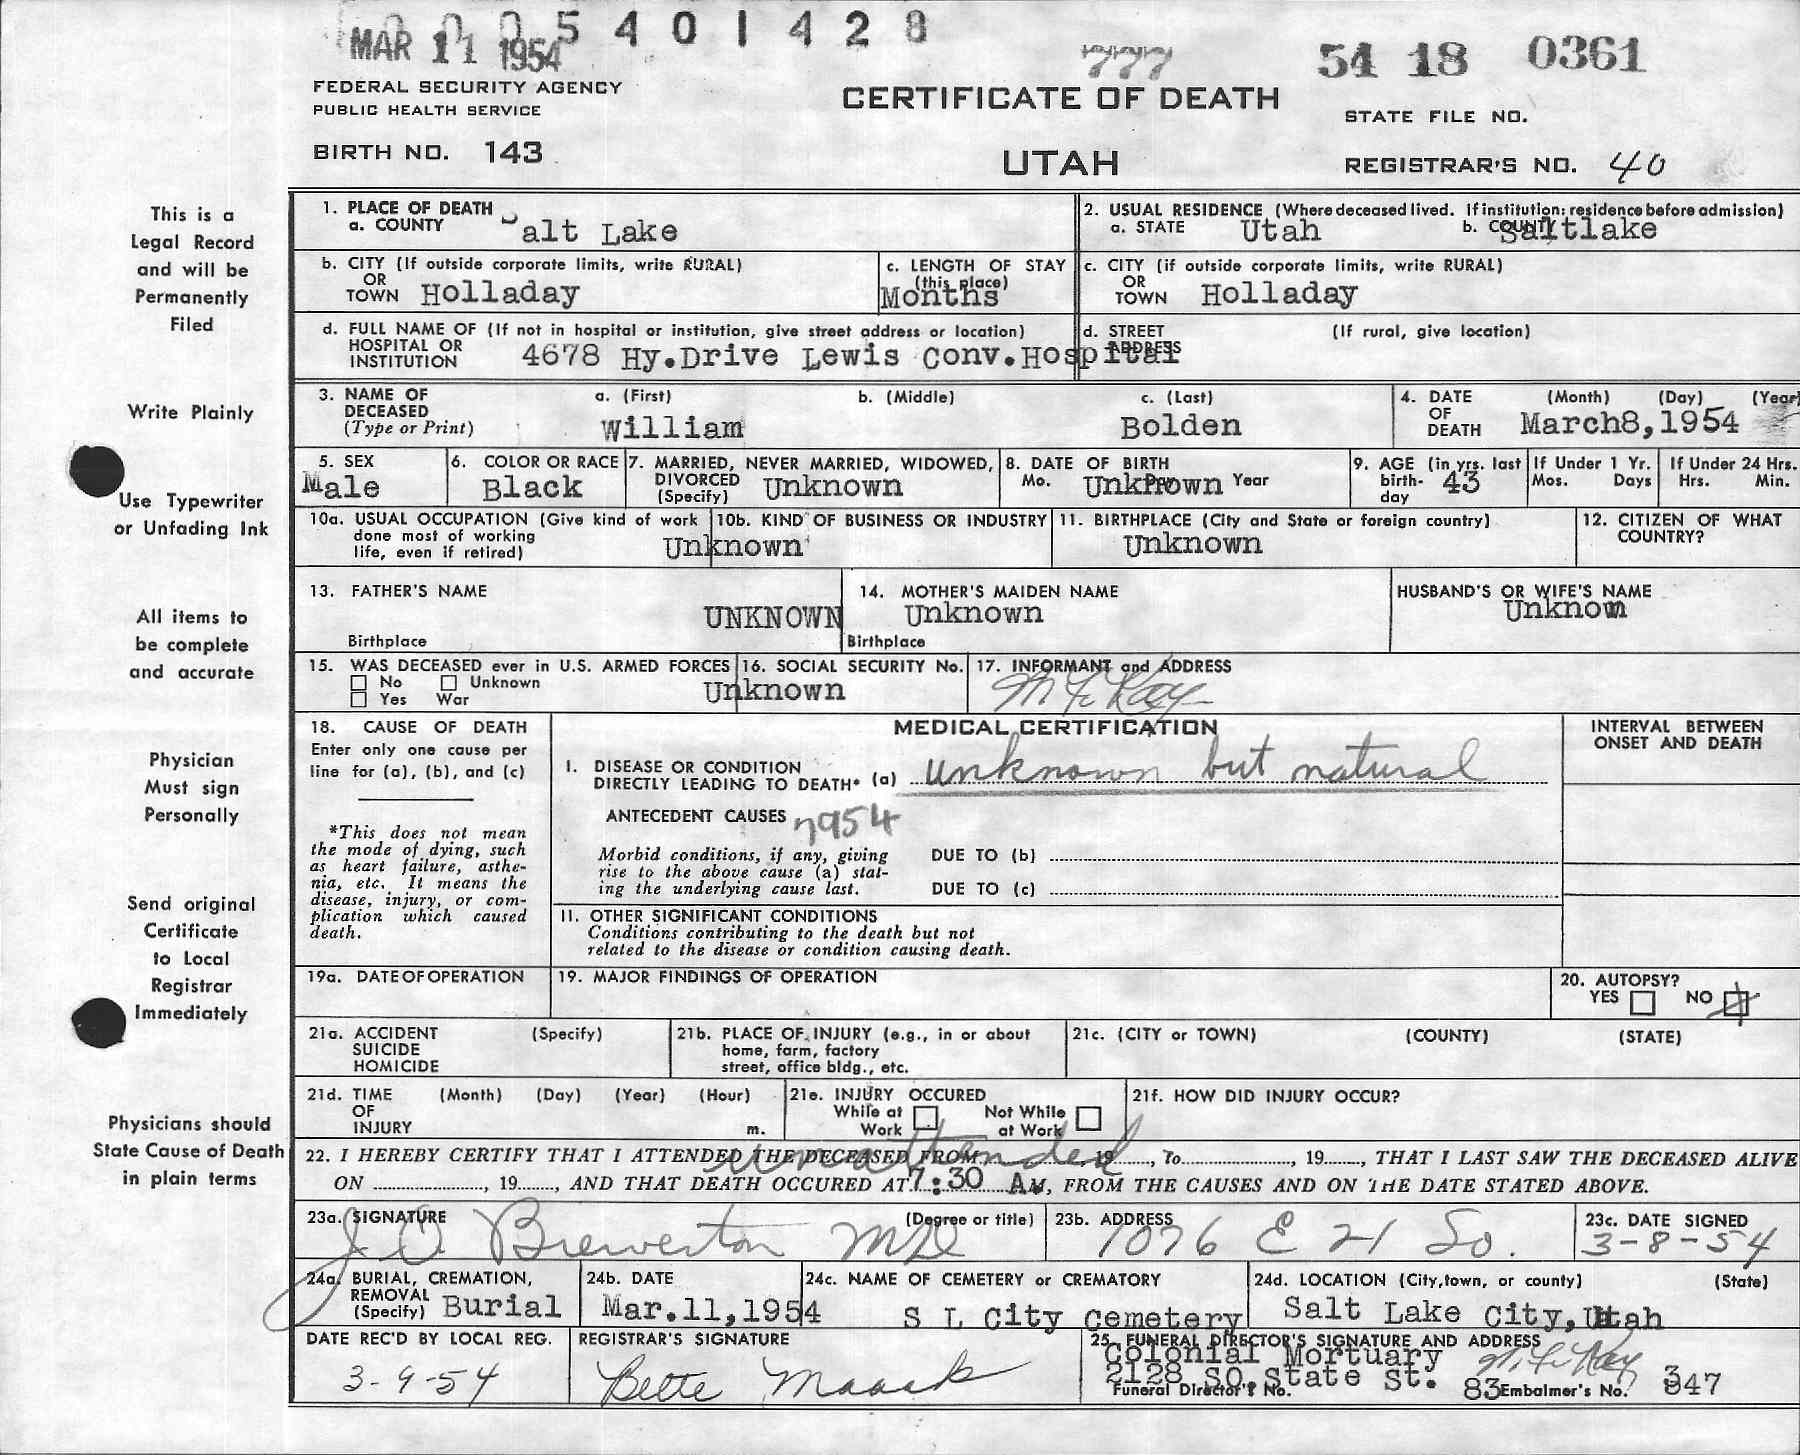 MAR 11 1954
0 0 5 4 0 1 4 2 8
777
54 18 0361
FEDERAL SECURITY AGENCY
PUBLIC HEALTH SERVICE
CERTIFICATE OF DEATH
STATE FILE NO.
BIRTH NO. 143
UTAH
REGISTRAR'S NO. 40
This is a
Legal Record
and will be
Permanently
Filed
Write Plainly
Use Typewriter
or Unfading Ink
All items to
be complete
and accurate
Physician
Must sign
Personally
Send original
Certificate
to Local
Registrar
Immediately
Physicians should
State Cause of Death
in plain terms
1. PLACE OF DEATH
a. COUNTY Salt Lake
2. USUAL RESIDENCE (Where deceased lived. If institution: residence before admission)
a. STATE Utah b. COUNTY Saltlake
b. CITY (If outside corporate limits, write RURAL)
OR
TOWN Holladay
c. LENGTH OF STAY
(this place)
Months
c. CITY (if outside corporate limits, write RURAL)
OR
TOWN Holladay
d. FULL NAME OF (If not in hospital or institution, give street address or location)
HOSPITAL OR
INSTITUTION 4678 Hy.Drive Lewis Conv.Hospital
d. STREET (If rural, give location)
ADDRESS
3. NAME OF
DECEASED
(Type or Print)
a. (First) b. (Middle) c. (Last)
William Bolden
4. DATE (Month) (Day) (Year)
OF
DEATH March8,1954
5. SEX
Male
6. COLOR OR RACE
Black
7. MARRIED, NEVER MARRIED, WIDOWED,
DIVORCED
(Specify) Unknown
8. DATE OF BIRTH
Mo. Day Year
Unknown
9. AGE (in yrs. last
birth-
day 43
If Under 1 Yr.
Mos. Days
If Under 24 Hrs.
Hrs. Min.
10a. USUAL OCCUPATION (Give kind of work
done most of working
life, even if retired)
10b. KIND OF BUSINESS OR INDUSTRY
Unknown
11. BIRTHPLACE (City and State or foreign country)
Unknown
12. CITIZEN OF WHAT
COUNTRY?
13. FATHER'S NAME
UNKNOWN
Birthplace
14. MOTHER'S MAIDEN NAME
Unknown
Birthplace
HUSBAND'S OR WIFE'S NAME
Unknown
15. WAS DECEASED ever in U.S. ARMED FORCES
No Unknown
Yes War
16. SOCIAL SECURITY No.
Unknown
17. INFORMANT and ADDRESS
18. CAUSE OF DEATH
Enter only one cause per
line for (a), (b), and (c)
*This does not mean
the mode of dying, such
as heart failure, asthe-
nia, etc. It means the
disease, injury, or com-
plication which caused
death.
MEDICAL CERTIFICATION
INTERVAL BETWEEN
ONSET AND DEATH
I. DISEASE OR CONDITION
DIRECTLY LEADING TO DEATH* (a) unknown but natural
ANTECEDENT CAUSES 7954
Morbid conditions, if any, giving
rise to the above cause (a) stat-
ing the underlying cause last.
DUE TO (b)
DUE TO (c)
II. OTHER SIGNIFICANT CONDITIONS
Conditions contributing to the death but not
related to the disease or condition causing death.
19a. DATE OF OPERATION
19. MAJOR FINDINGS OF OPERATION
20. AUTOPSY?
YES NO
21a. ACCIDENT (Specify)
SUICIDE
HOMICIDE
21b. PLACE OF INJURY (e.g., in or about
home, farm, factory
street, office bldg., etc.
21c. (CITY or TOWN) (COUNTY) (STATE)
21d. TIME (Month) (Day) (Year) (Hour)
OF
INJURY m.
21e. INJURY OCCURED
While at Not While
Work at Work
21f. HOW DID INJURY OCCUR?
unattended
22. I HEREBY CERTIFY THAT I ATTENDED THE DECEASED FROM 19, To, 19, THAT I LAST SAW THE DECEASED ALIVE
ON, 19, AND THAT DEATH OCCURED AT 7:30 AM, FROM THE CAUSES AND ON THE DATE STATED ABOVE.
23a. SIGNATURE (Degree or title)
J O Brewerton MD
23b. ADDRESS
1076 E 21 So.
23c. DATE SIGNED
3-8-54
24a. BURIAL, CREMATION,
REMOVAL
(Specify) Burial
24b. DATE
Mar.11,1954
24c. NAME OF CEMETERY or CREMATORY
S L City Cemetery
24d. LOCATION (City, town, or county) (State)
Salt Lake City, Utah
DATE REC'D BY LOCAL REG.
3-9-54
REGISTRAR'S SIGNATURE
Bette Maack
25. FUNERAL DIRECTOR'S SIGNATURE AND ADDRESS
Colonial Mortuary
2128 SO.State St.
Funeral Director's No. 83 Embalmer's No. 347